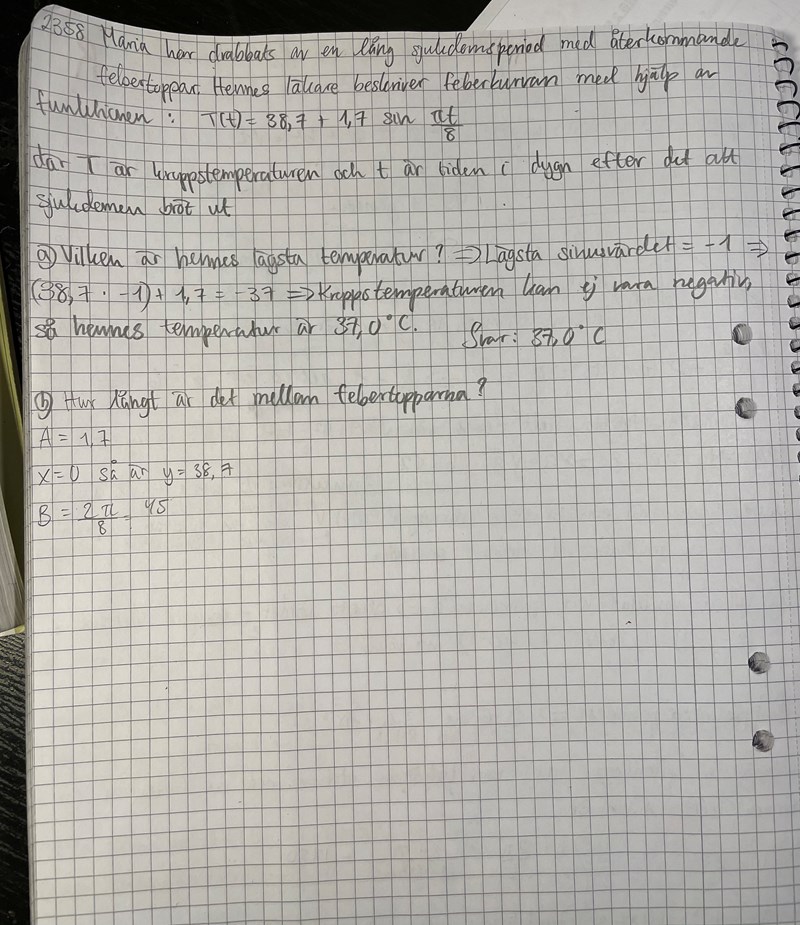 2358 Maria har drabbats av en lång sjukdomsperiod med återkommande
febertoppar. Hennes läkare beskriver feberkurvan med hjälp av
funktionen : T(t) = 38,7 + 1,7 sin πt/8
där T är kroppstemperaturen och t är tiden i dygn efter det att
sjukdomen bröt ut
a) Vilken är hennes lägsta temperatur? ⇒ Lägsta sinusvärdet = -1 ⇒
(38,7 · -1) + 1,7 = -37 ⇒ Kroppstemperaturen kan ej vara negativ,
så hennes temperatur är 37,0°C. Svar: 37,0°C
b) Hur långt är det mellan febertopparna?
A = 1,7
x=0 så är y = 38,7
B = 2π/8 = 45